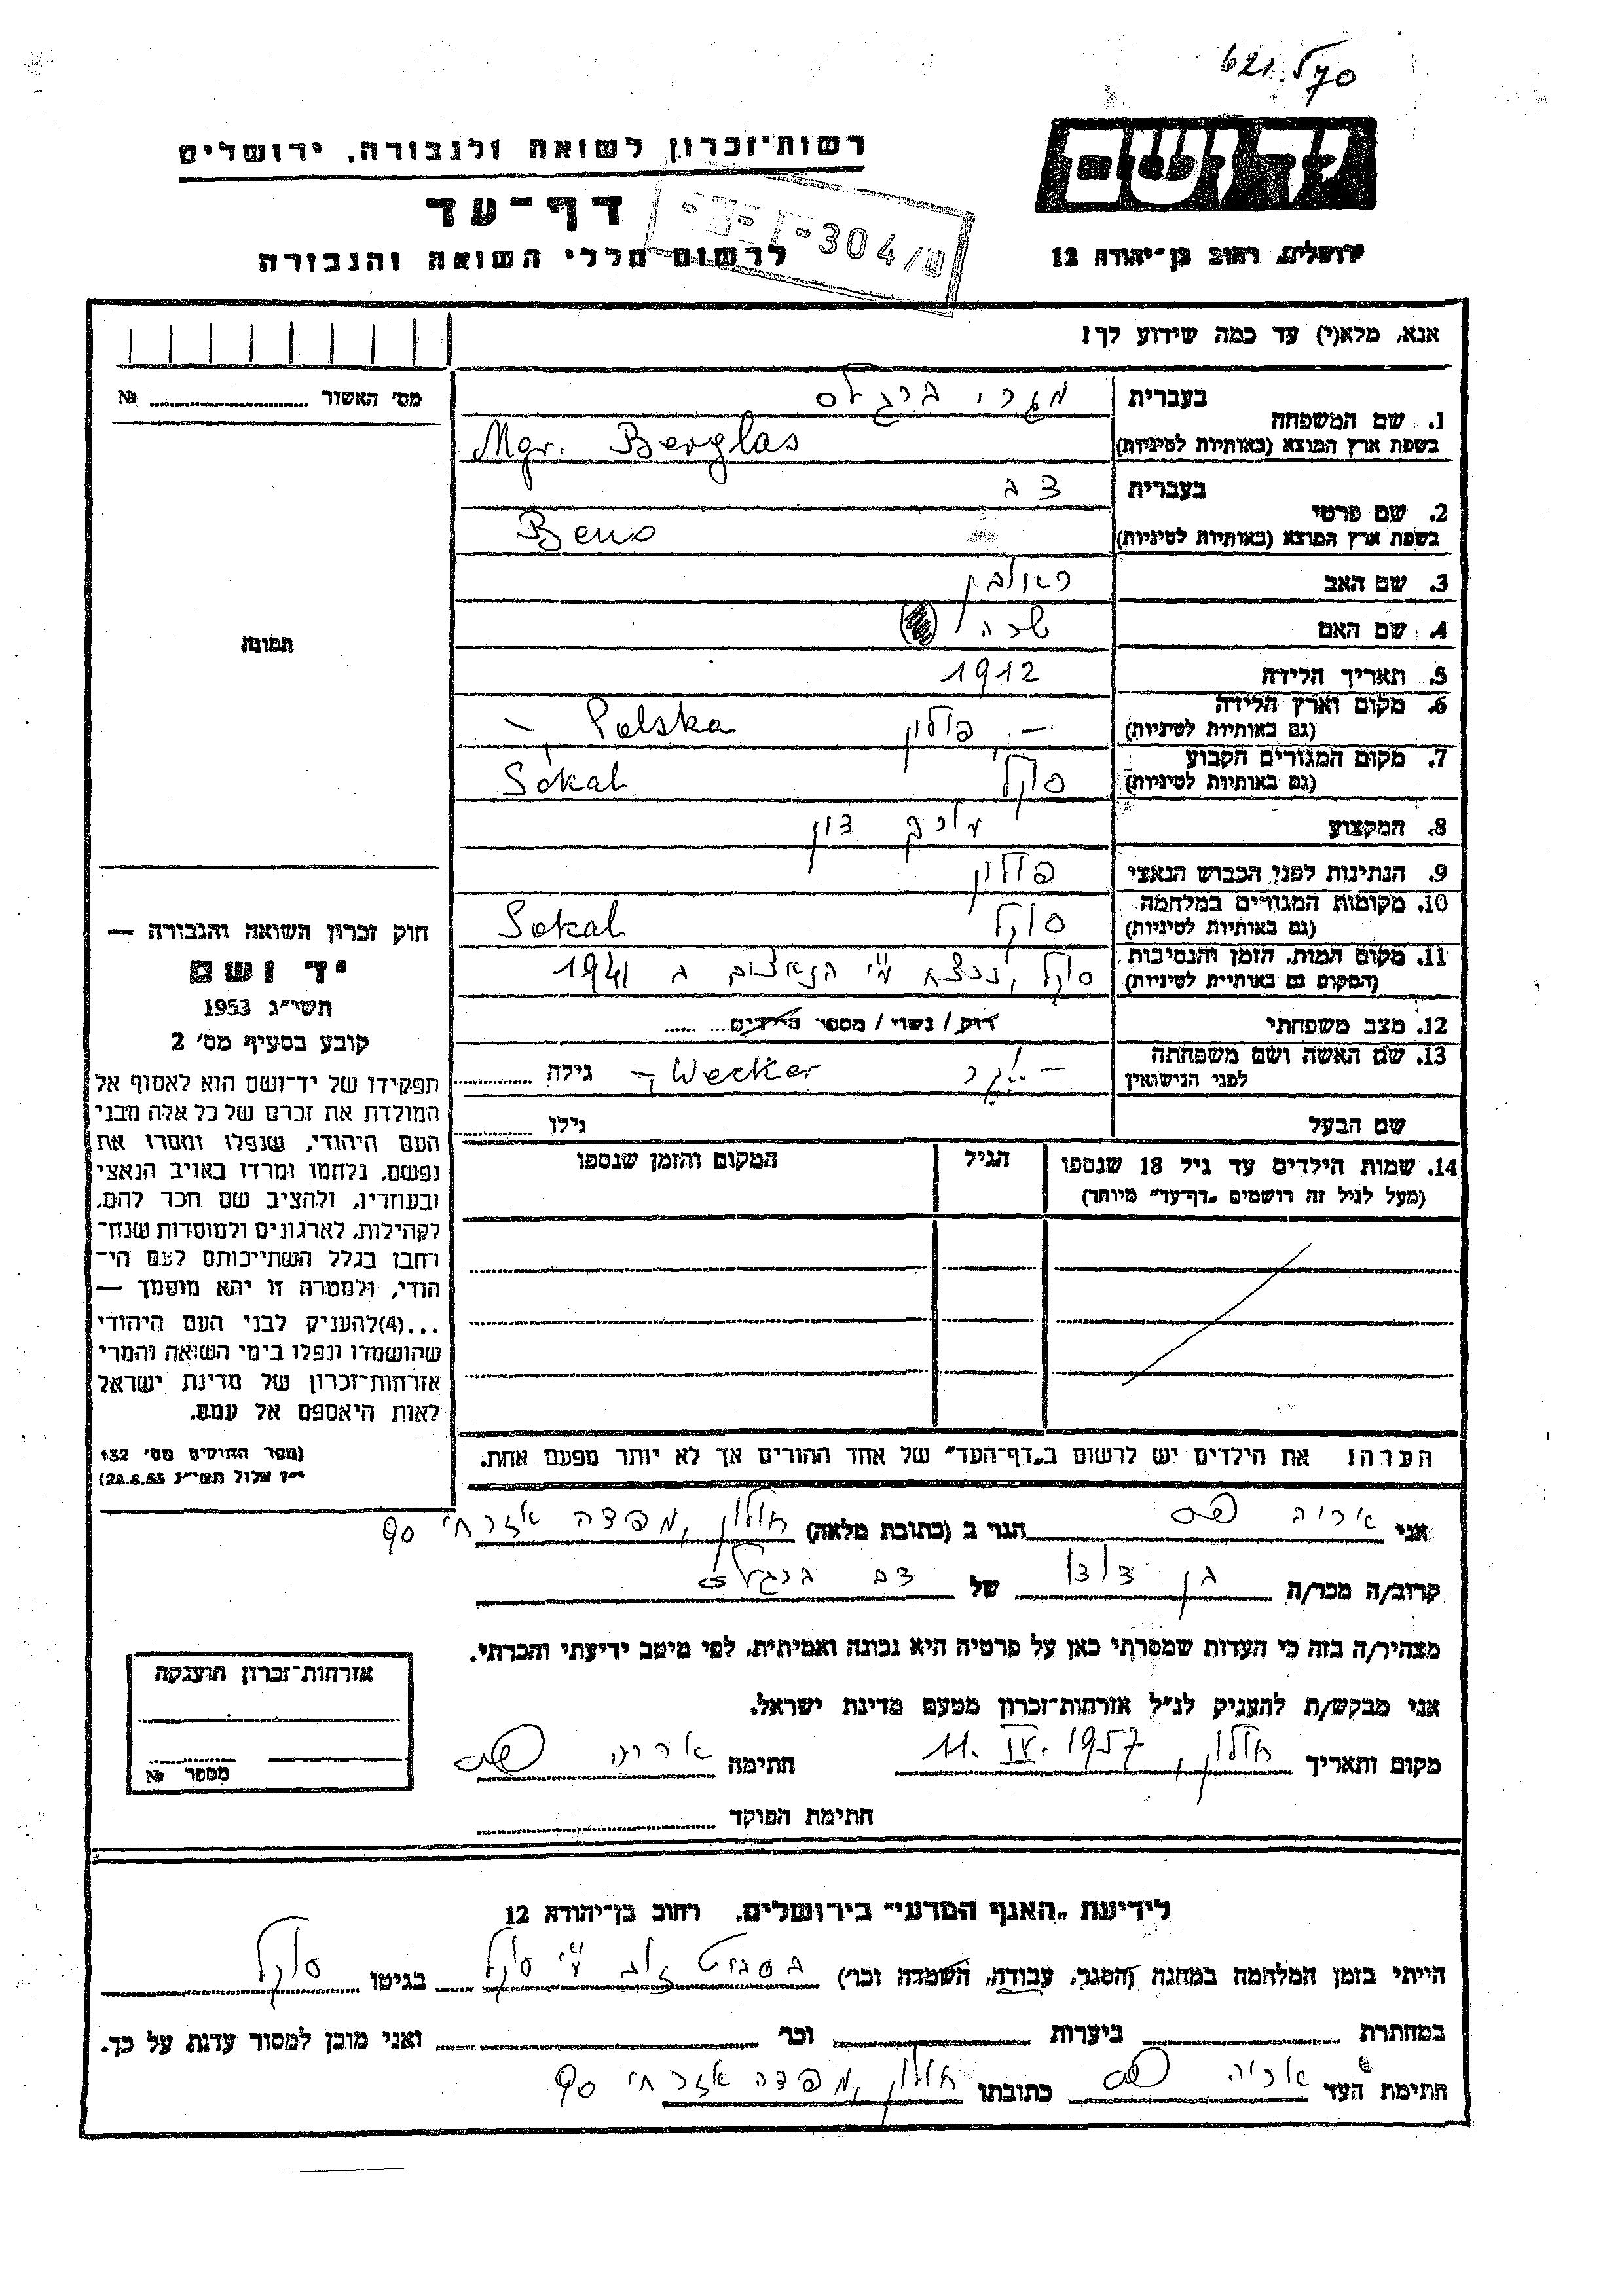 621570
רשות-זכרון לשואה ולגבורה, ירושלים
יד ושם
דף-עד
304/ש
לרשום חללי השואה והגבורה
ירושלים, רחוב בן-יהודה 12
אנא, מלא(י) עד כמה שידוע לך!
מס' האשור № 
1. שם המשפחה
בעברית
ברגלס
בשפת ארץ המוצא (באותיות לטיניות)
Mgr. Berglas
2. שם פרטי
בעברית
דב
בשפת ארץ המוצא (באותיות לטיניות)
Beno
3. שם האב
4. שם האם שרה
תמונה
5. תאריך הלידה 1912
6. מקום וארץ הלידה
(גם באותיות לטיניות)
–, פולין –, Polska
7. מקום המגורים הקבוע
(גם באותיות לטיניות)
סוקל Sokal
8. המקצוע עורך דין
9. הנתינות לפני הכבוש הנאצי פולין
10. מקומות המגורים במלחמה
(גם באותיות לטיניות)
סוקל Sokal
11. מקום המות, הזמן והנסיבות
(המקום גם באותיות לטיניות)
סוקל, נרצח ע"י הנאצים ב 1941
12. מצב משפחתי רווק / נשוי / מספר הילדים
13. שם האשה ושם משפחתה
לפני הנישואין
–, וקר –, Wecker גילה
שם הבעל גילו
14. שמות הילדים עד גיל 18 שנספו
(מעל לגיל זה רושמים "דף-עד" מיוחד)
הגיל
המקום והזמן שנספו
חוק זכרון השואה והגבורה —
יד ושם
תשי"ג 1953
קובע בסעיף מס' 2
תפקידו של יד-ושם הוא לאסוף אל
המולדת את זכרם של כל אלה מבני
העם היהודי, שנפלו ומסרו את
נפשם, נלחמו ומרדו באויב הנאצי
ובעוזריו, ולהציב שם וזכר להם,
לקהילות, לארגונים ולמוסדות שנח-
רבו בגלל השתייכותם לעם הי-
הודי, ולמטרה זו יהא מוסמך —
...(4)להעניק לבני העם היהודי
שהושמדו ונפלו בימי השואה והמרי
אזרחות-זכרון של מדינת ישראל
לאות היאספם אל עמם.
(ספר החוקים מס' 132
י"ז אלול תשי"ג 28.8.53)
הערה! את הילדים יש לרשום ב"דף-העד" של אחד ההורים אך לא יותר מפעם אחת.
אני אריה הגר ב (כתובת מלאה) חולון, אזרחי 90
קרוב/ה מכר/ה בן דודו של דב ברגלס
מצהיר/ה בזה כי העדות שמסרתי כאן על פרטיה היא נכונה ואמיתית, לפי מיטב ידיעתי והכרתי.
אני מבקש/ת להעניק לנ"ל אזרחות-זכרון מטעם מדינת ישראל.
מקום ותאריך חולון, 11. IV. 1957 חתימה אריה
חתימת הפוקד
אזרחות-זכרון הוענקה
מספר №
לידיעת "האגף המדעי" בירושלים, רחוב בן-יהודה 12
הייתי בזמן המלחמה במחנה (הסגר, עבודה, השמדה וכו') ע"י סוקל בגיטו סוקל
במחתרת ביערות וכו' ואני מוכן למסור עדות על כך.
חתימת העד אריה כתובתו חולון, אזרחי 90